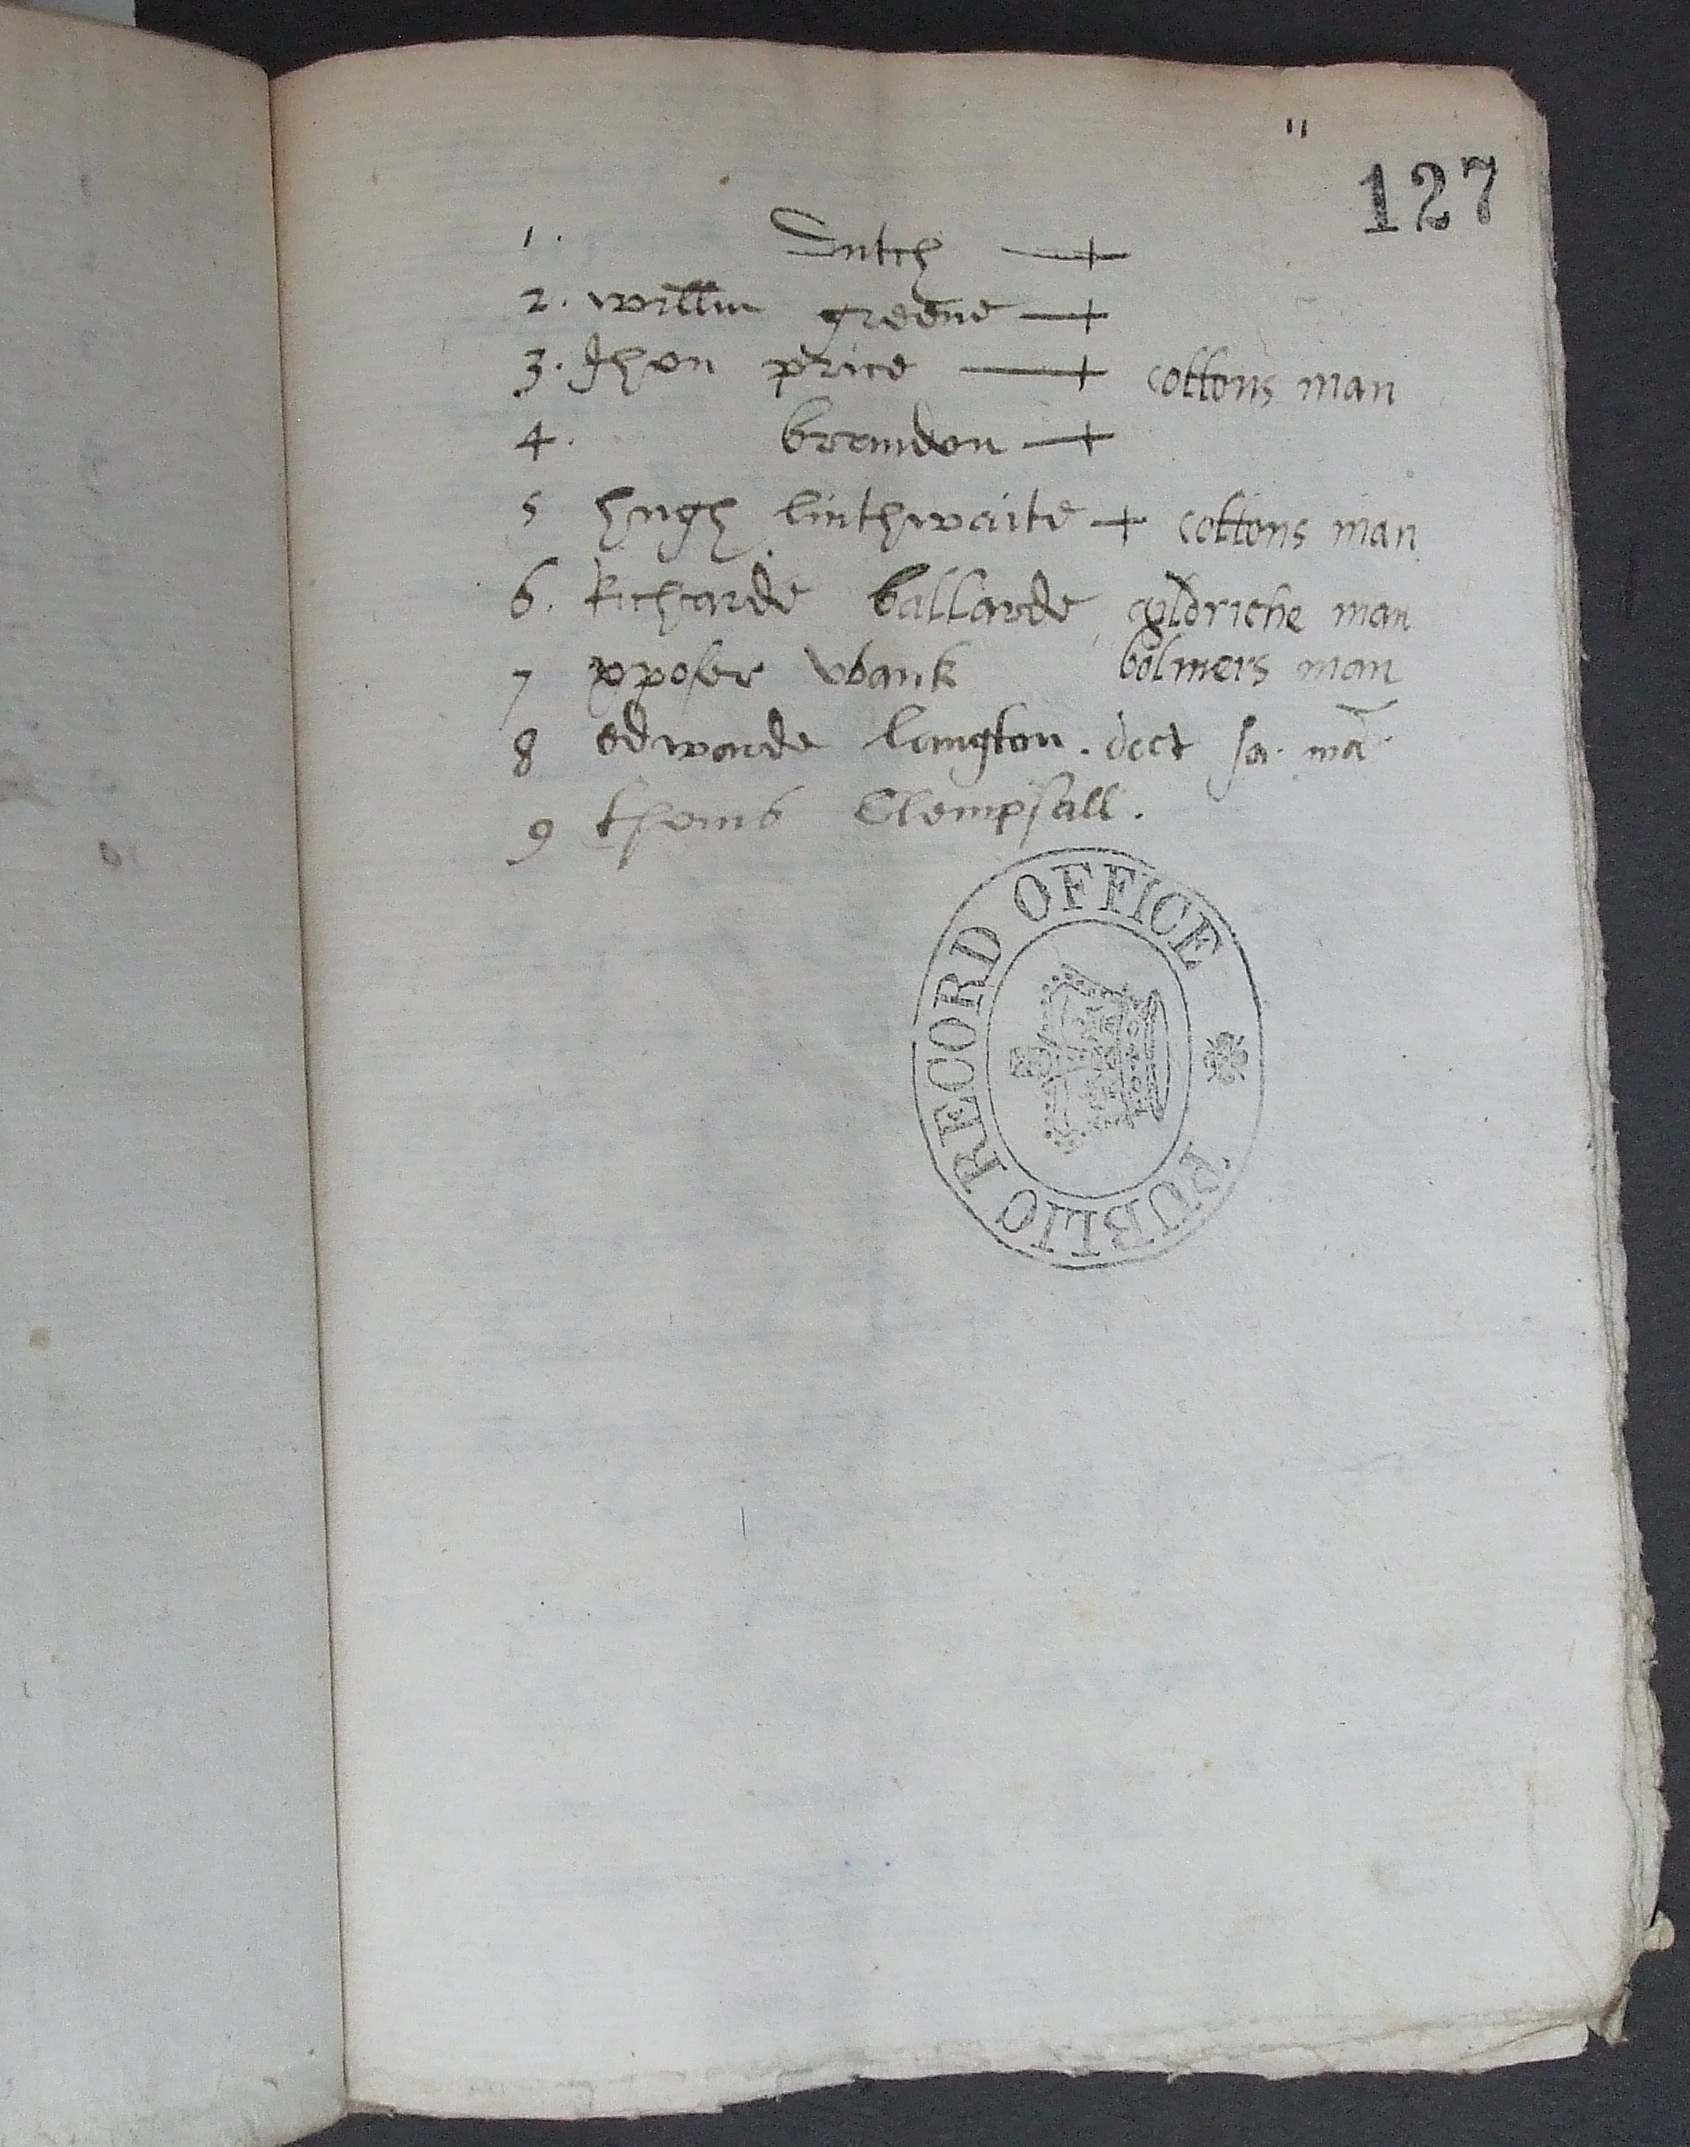 "
127
1. Dutch +
2. willm greene +
3. Jhon price + cottons man
4. brandon +
5 hugh linthwaite + cottons man
6. Richarde ballarde man
7 xpofer Ubank bolmers man
8 edwarde langton. doct sa. ma
9 thoms Clempsall.
PUBLIC RECORD OFFICE